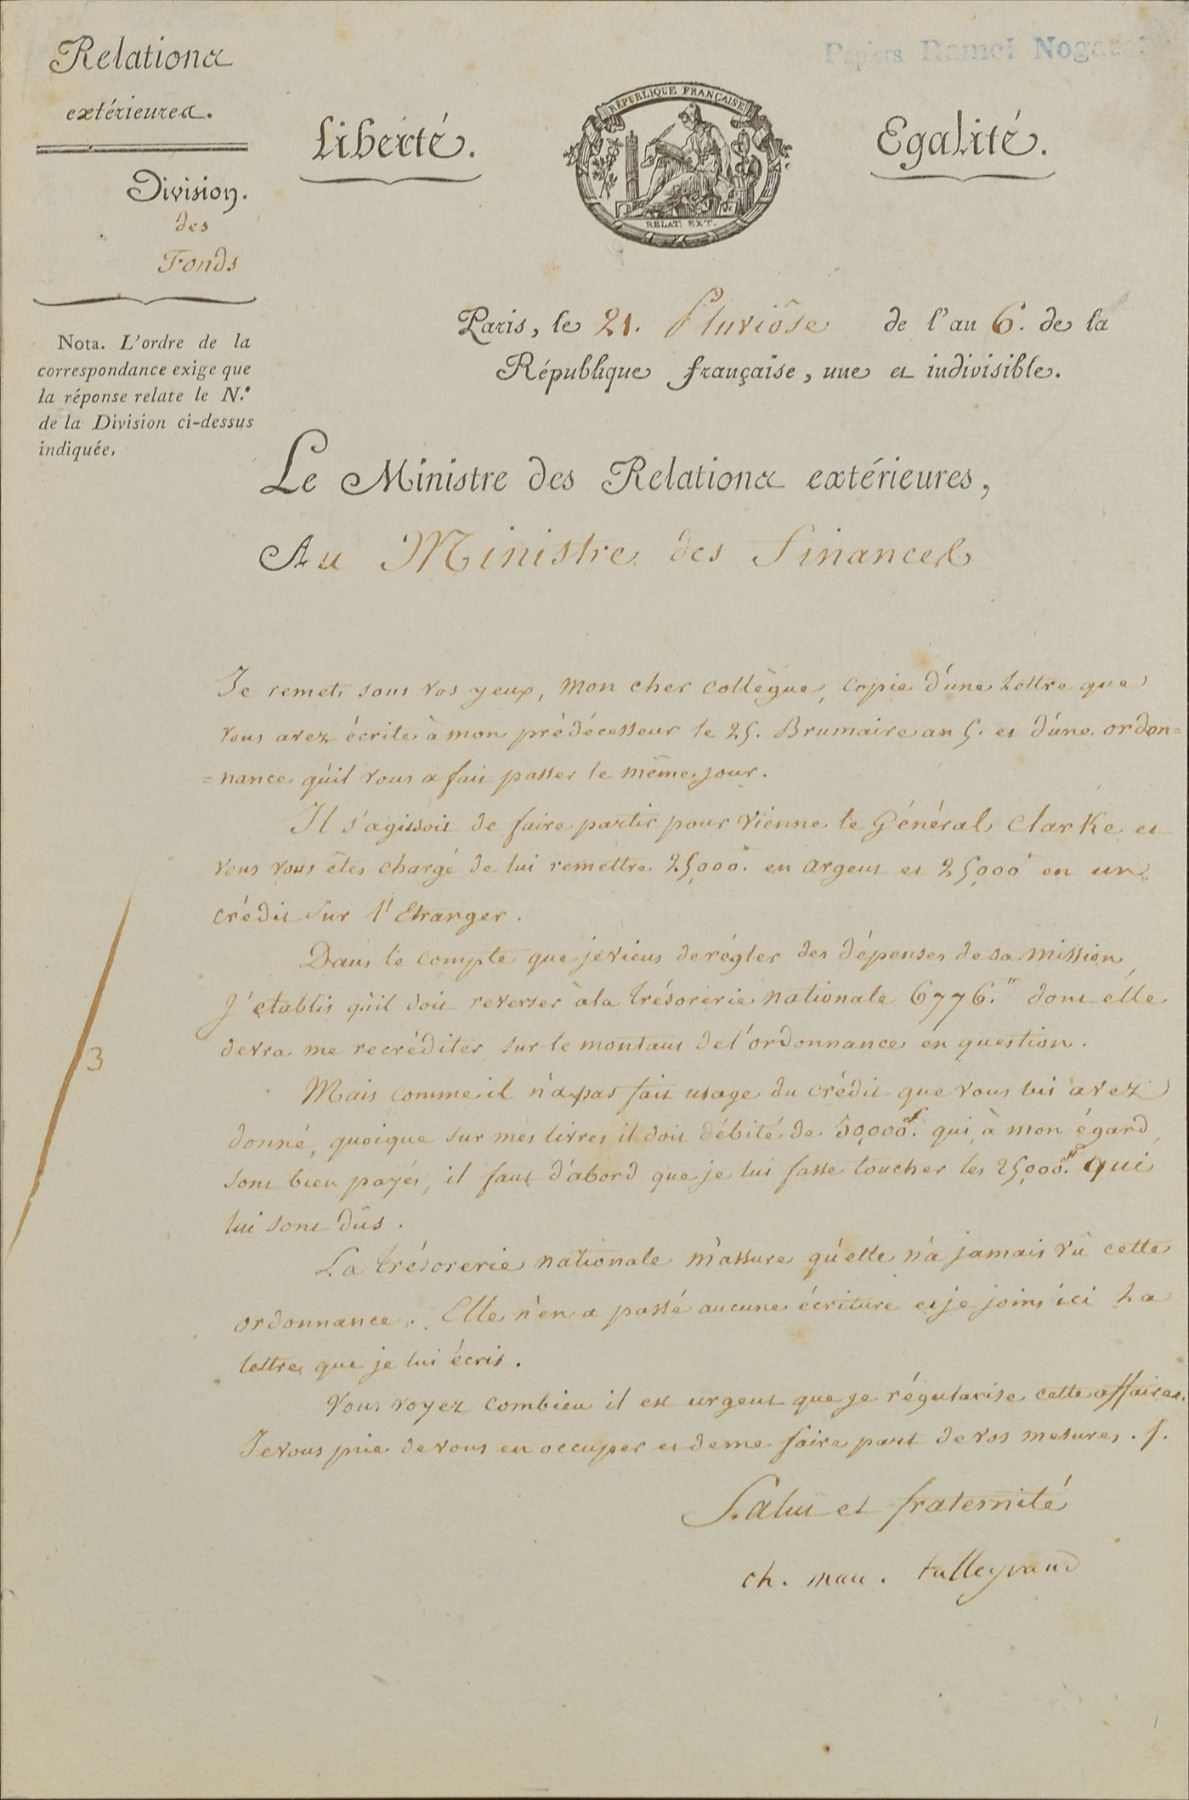 Relations
extérieures.
Division.
des
Fonds
Nota. L'ordre de la
correspondance exige que
la réponse relate le N.º
de la Division ci-dessus
indiquée.
Papiers Ramel Nogaret
Liberté.
RÉPUBLIQUE FRANÇAISE
RELAT. EXT.
Egalité.
Paris, le 21. Pluviôse de l'an 6. de la
République française, une et indivisible.
Le Ministre des Relations extérieures,
Au Ministre des finances
Je remets sous vos yeux, mon cher collègue, copie d'une lettre que
vous avez écrite à mon prédécesseur le 25. Brumaire an 5. et d'une ordon=
=nance qu'il vous a fait passer le même jour.
Il s'agissoit de faire partir pour Vienne le Général Clarke et
vous vous êtes chargé de lui remettre 25,000." en argent et 25,000' en un
crédit sur l'Etranger.
Dans le compte que je viens de régler des dépenses de sa mission,
J'établis qu'il doit reverser à la trésorerie nationale 6776." dont elle
devra me recréditer sur le montant de l'ordonnance en question.
3
Mais comme il n'a pas fait usage du crédit que vous lui avez
donné, quoique sur mes livres il soit débité de 50,000.# qui, à mon égard,
sont bien payés, il faut d'abord que je lui fasse toucher les 25,000.# qui
lui sont dûs.
La trésorerie nationale m'assure qu'elle n'a jamais vû cette
ordonnance. Elle n'en a passé aucune écriture et je joins ici la
lettre que je lui écris.
Vous voyez combien il est urgent que je régularise cette affaire.
Je vous prie de vous en occuper et de me faire part de vos mesures. /.
Salut et fraternité
ch. mau. talleyrand